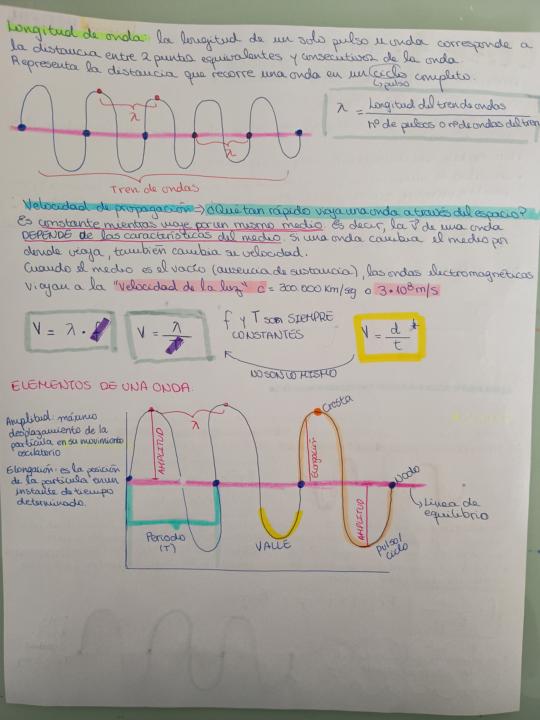 Longitud de onda: la longitud de un solo pulso u onda corresponde a
la distancia entre 2 puntos equivalentes y consecutivos de la onda.
Representa la distancia que recorre una onda en un ciclo completo.
↳ pulso
λ
λ
Tren de ondas
λ = Longitud del tren de ondas
Nº de pulsos o nº de ondas del tren
Velocidad de propagación => ¿Qué tan rápido viaja una onda a través del espacio?
Es constante mientras viaje por un mismo medio. Es decir, la V de una onda
DEPENDE de las características del medio. Si una onda cambia el medio por
donde viaja, también cambia su velocidad.
Cuando el medio es el vacío (ausencia de sustancia), las ondas electromagnéticas
viajan a la "velocidad de la luz" c = 300.000 Km/sg o 3•10⁸ m/s
V = λ • f
V = λ / T
f y T son SIEMPRE
CONSTANTES
V = d / t
NO SON LO MISMO
ELEMENTOS DE UNA ONDA.
Amplitud: máximo
desplazamiento de la
partícula en su movimiento
oscilatorio
Elongación: es la posición
de la partícula en un
instante de tiempo
determinado.
λ
AMPLITUD
Cresta
Elongación
Nodo
Línea de
equilibrio
AMPLITUD
Periodo
(T)
VALLE
Pulso/
ciclo